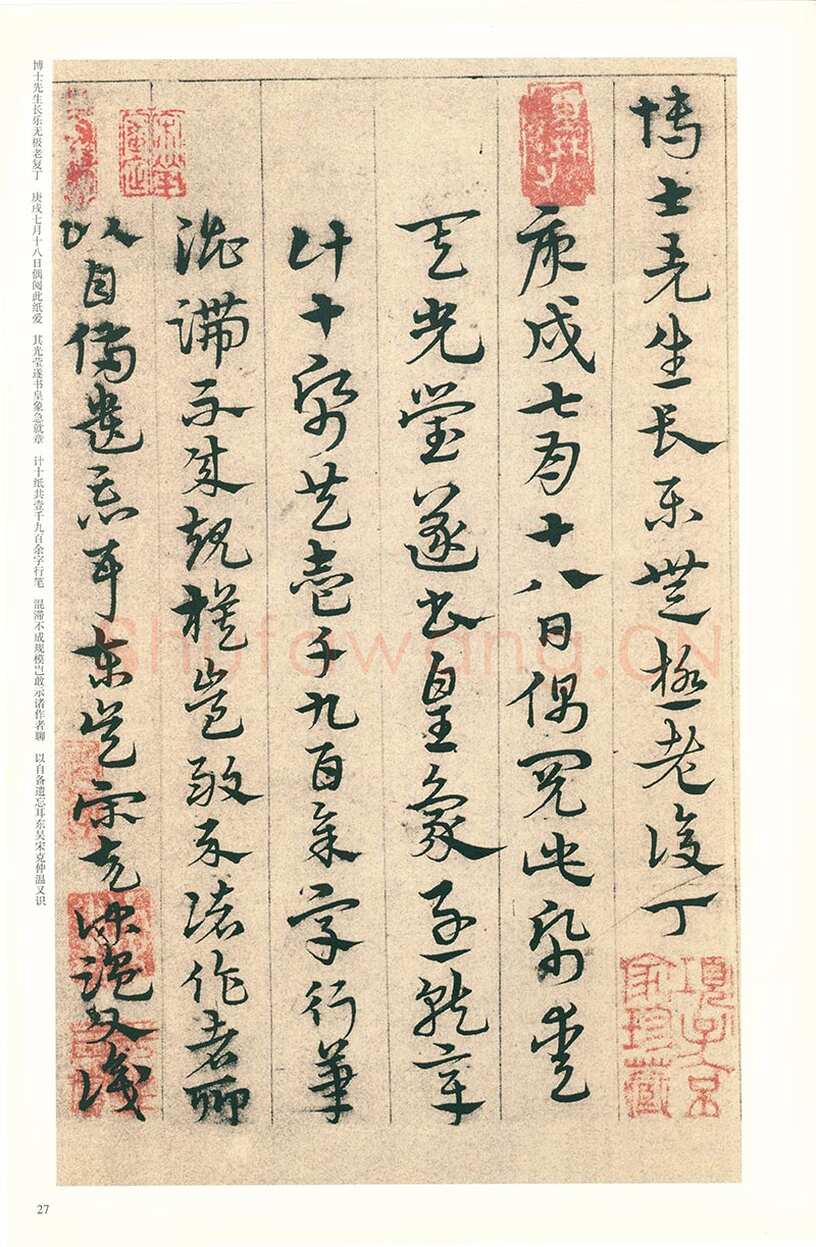 博士先生長樂無極老復丁
庚戌七月十八日偶閱此紙愛
其光瑩遂書皇象急就章
計十紙共壹千九百余字行筆
混滯不成規模豈敢示諸作者聊
以自備遺忘耳東吳宋克仲温又識
項子京
家珍藏
博士先生长乐无极老复丁 庚戌七月十八日偶阅此纸爱 其光莹遂书皇象急就章 计十纸共壹千九百余字行笔 混滞不成规模岂敢示诸作者聊 以自备遗忘耳东吴宋克仲温又识
Shufawang.CN
27